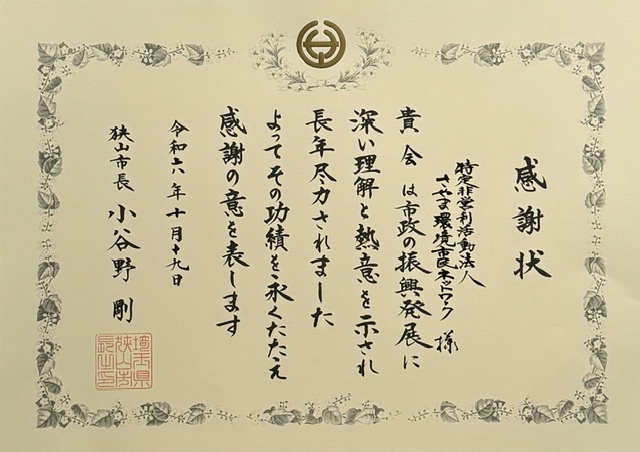 感謝状
特定非営利活動法人
さやま環境市民ネットワーク 様
貴会は市政の振興発展に
深い理解と熱意を示され
長年尽力されました
よってその功績を永くたたえ
感謝の意を表します
令和六年十月十九日
狭山市長 小谷野 剛
埼玉県
狭山市
長之印